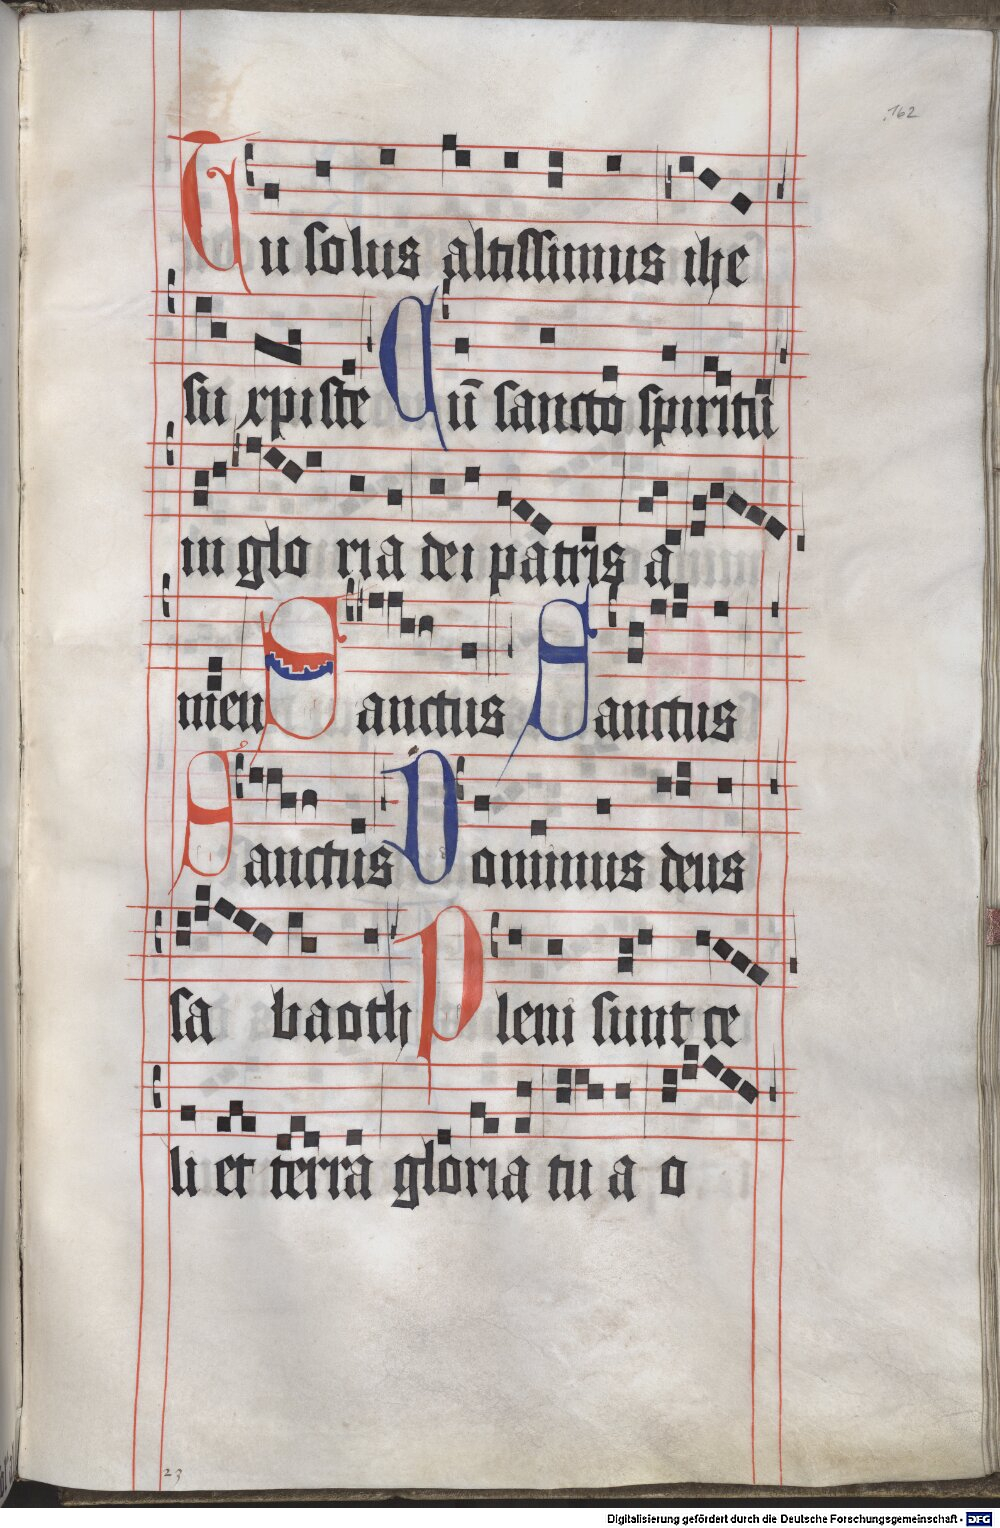 162
Tu solus altissimus ihe
su xpiste Cū sancto spiritū
in glo ria dei patris a
men Sanctus Sanctus
Sanctus Dominus deus
sa baoth Pleni sunt ce
li et terra gloria tu a o
23
Digitalisierung gefördert durch die Deutsche Forschungsgemeinschaft - DFG